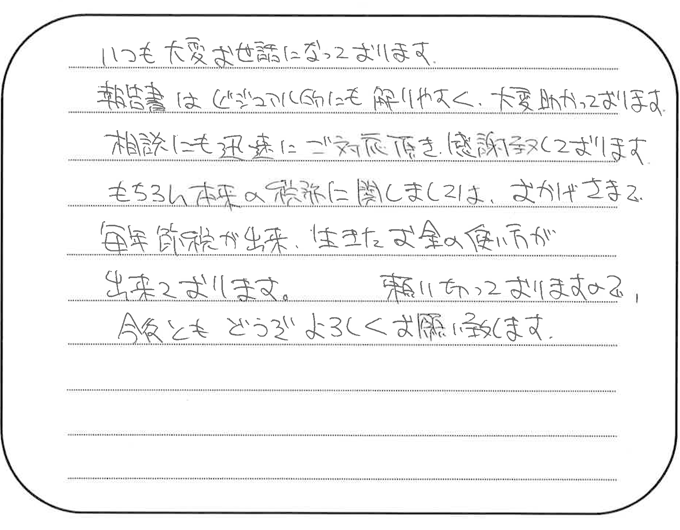 いつも大変お世話になっております.
報告書はビジュアル的にも解りやすく、大変助かっております.
相談にも迅速にご対応頂き、感謝致しております.
もちろん本来の税務に関しましては、おかげさまで
毎年節税が出来、生きたお金の使い方が
出来ております。 頼り切っておりますので、
今後ともどうぞよろしくお願い致します.